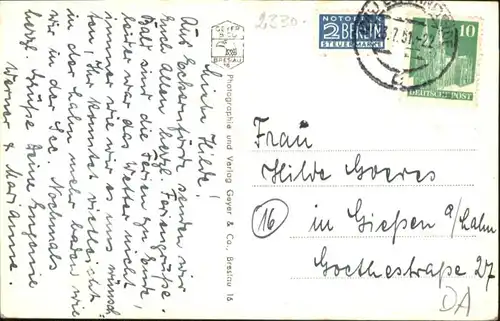 Liebe Hilde!
Aus Eckernförde senden wir
Euch Allen herzl. Feriengrüße.
Bald sind die Ferien zu Ende,
leider war das Wetter nicht
immer wie wir es uns wünsch-
ten, Ihr konntet vielleicht
in der Lahn mehr baden wie
wir in der See. Nochmals
herzl. Grüße Deine Eugenie
Werner & Marianne.
GEYER
BRESLAU
Photographie und Verlag Geyer & Co., Breslau 16
2330.-
NOTOPFER
2 BERLIN
STEUERMARKE
.7.51.-22
10
DEUTSCHE POST
Frau
Hilde Goeres
(16) in Gießen a/Lahn
Goethestraße 27
DA